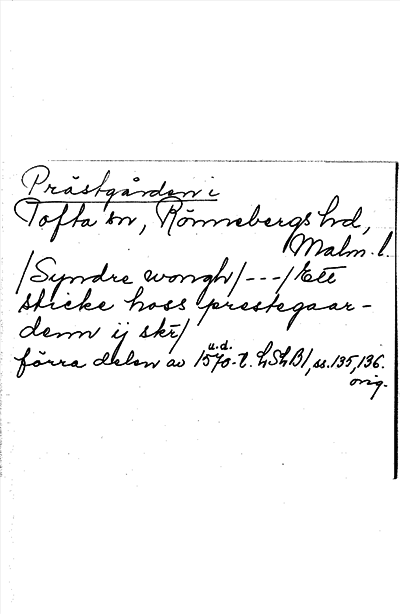 Prästgården i
Tofta sn, Rönnebergs hd,
Malm. l.
/Syndre wongh/---/Ett
sticke hoss prestegaar-
denn ij skr/
u.d.
förra delen av 1570-t. LShB1, ss. 135, 136.
orig.